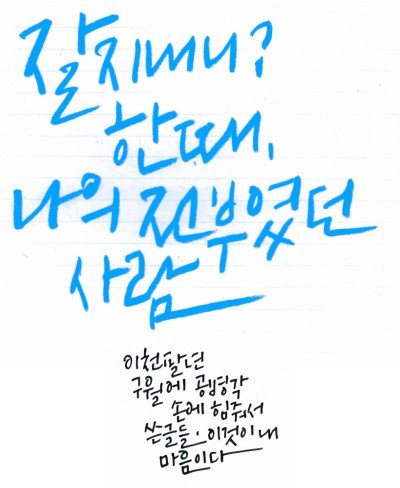 잘지내니?
한때,
나의 전부였던
사람
이천팔년
구월에 공병각
손에 힘줘서
쓴글들. 이것이 내
마음이다